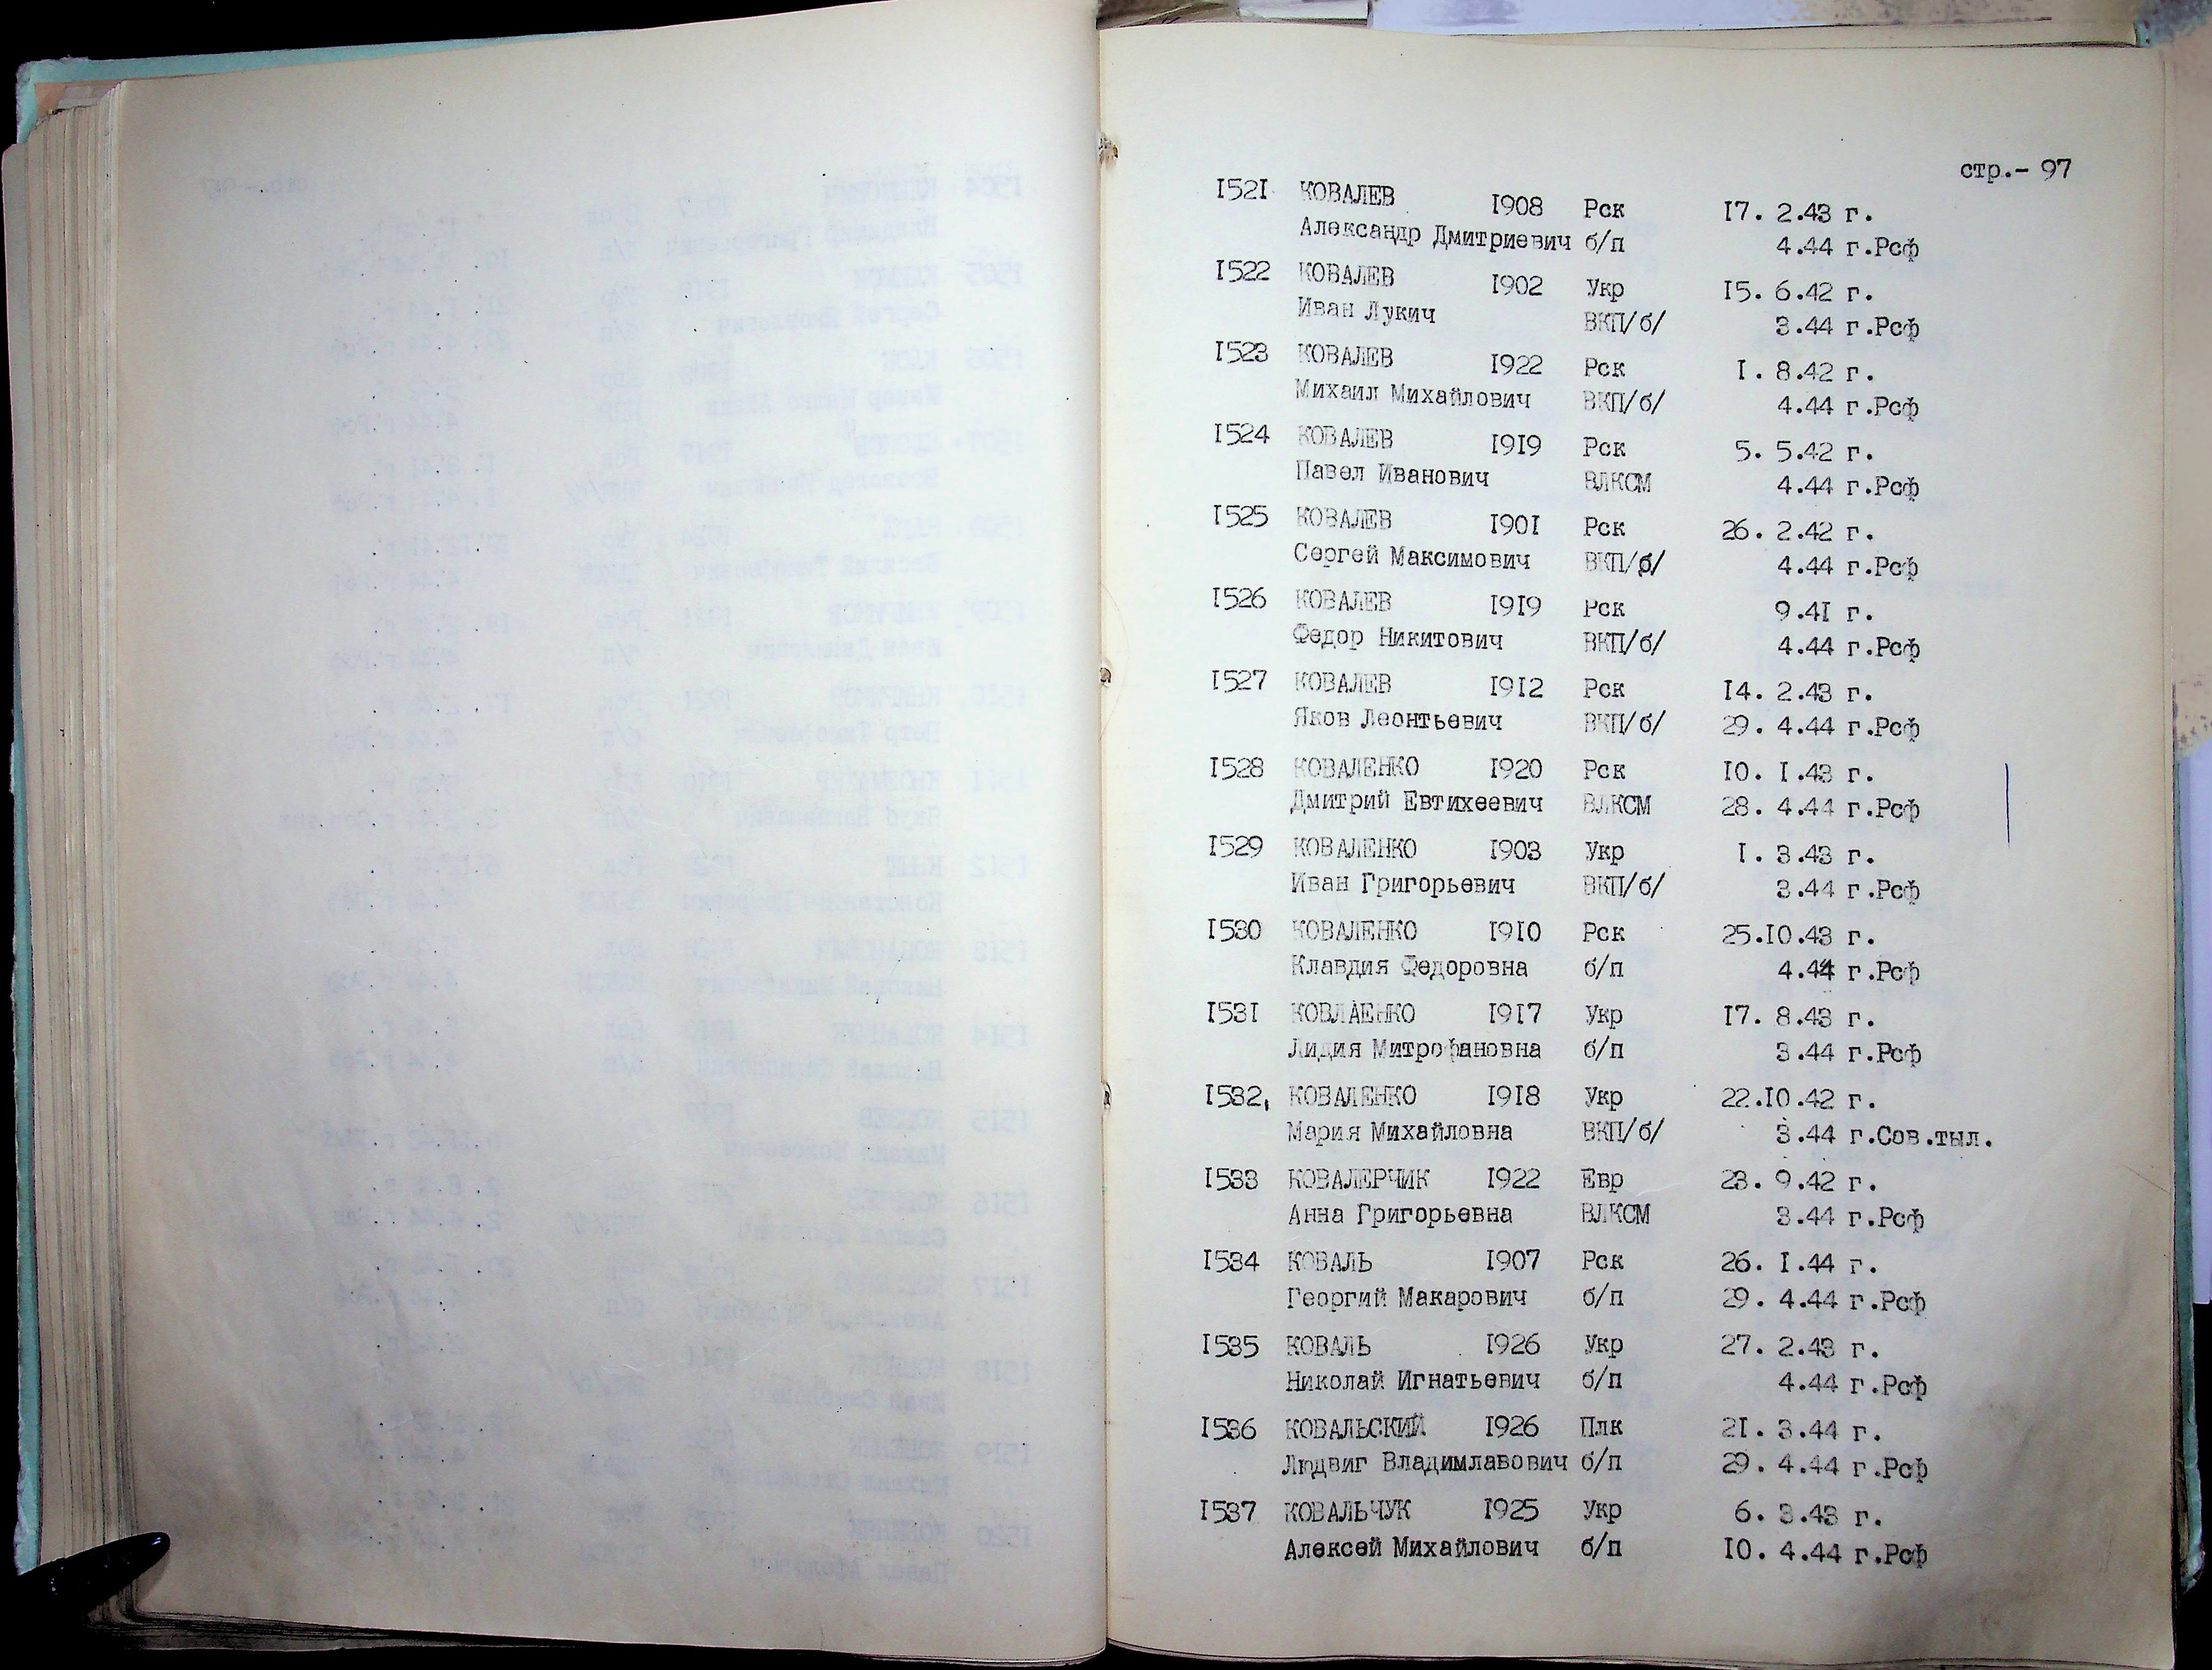 стр.- 97
I52I КОВАЛЕВ I908 Рск I7. 2.43 г.
Александр Дмитриевич б/п 4.44 г.Рсф
I522 КОВАЛЕВ I902 Укр I5. 6.42 г.
Иван Лукич ВКП/б/ 3.44 г.Рсф
I523 КОВАЛЕВ I922 Рск I. 8.42 г.
Михаил Михайлович ВКП/б/ 4.44 г.Рсф
I524 КОВАЛЕВ I9I9 Рск 5. 5.42 г.
Павел Иванович ВЛКСМ 4.44 г.Рсф
I525 КОВАЛЕВ I90I Рск 26. 2.42 г.
Сергей Максимович ВКП/б/ 4.44 г.Рсф
I526 КОВАЛЕВ I9I9 Рск 9.4I г.
Федор Никитович ВКП/б/ 4.44 г.Рсф
I527 КОВАЛЕВ I9I2 Рск I4. 2.43 г.
Яков Леонтьевич ВКП/б/ 29. 4.44 г.Рсф
I528 КОВАЛЕНКО I920 Рск I0. I.43 г.
Дмитрий Евтихеевич ВЛКСМ 28. 4.44 г.Рсф
I529 КОВАЛЕНКО I903 Укр I. 3.43 г.
Иван Григорьевич ВКП/б/ 3.44 г.Рсф
I530 КОВАЛЕНКО I9I0 Рск 25.I0.43 г.
Клавдия Федоровна б/п 4.44 г.Рсф
I53I КОВЛАЕНКО I9I7 Укр I7. 8.43 г.
Лидия Митрофановна б/п 3.44 г.Рсф
I532, КОВАЛЕНКО I9I8 Укр 22.I0.42 г.
Мария Михайловна ВКП/б/ 3.44 г.Сов.тыл.
I533 КОВАЛЕРЧИК I922 Евр 23. 9.42 г.
Анна Григорьевна ВЛКСМ 3.44 г.Рсф
I534 КОВАЛЬ I907 Рск 26. I.44 г.
Георгий Макарович б/п 29. 4.44 г.Рсф
I535 КОВАЛЬ I926 Укр 27. 2.43 г.
Николай Игнатьевич б/п 4.44 г.Рсф
I536 КОВАЛЬСКИЙ I926 Плк 2I. 3.44 г.
Людвиг Владимлавович б/п 29. 4.44 г.Рсф
I537 КОВАЛЬЧУК I925 Укр 6. 3.43 г.
Алексей Михайлович б/п I0. 4.44 г.Рсф